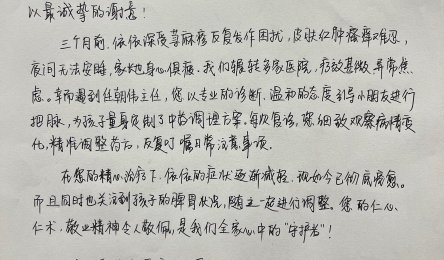 以最诚挚的谢意！
三个月前，依依深受荨麻疹反复发作困扰，皮肤红肿瘙痒难忍，
夜间无法安睡，家长也身心俱疲。我们辗转多家医院，疗效甚微，异常焦
虑。幸而遇到任朝伟主任，您以专业的诊断、温和的态度引导小朋友进行
把脉，为孩子量身定制了中药调理方案。每次复诊，您细致观察病情变
化，精准调整药方，反复叮嘱日常注意事项。
在您的精心治疗下，依依的症状逐渐减轻，现如今已彻底痊愈。
而且同时也关注到孩子的脾胃状况，随之一起进行调整。您的仁心、
仁术、敬业精神令人敬佩，是我们全家心中的“守护者”！